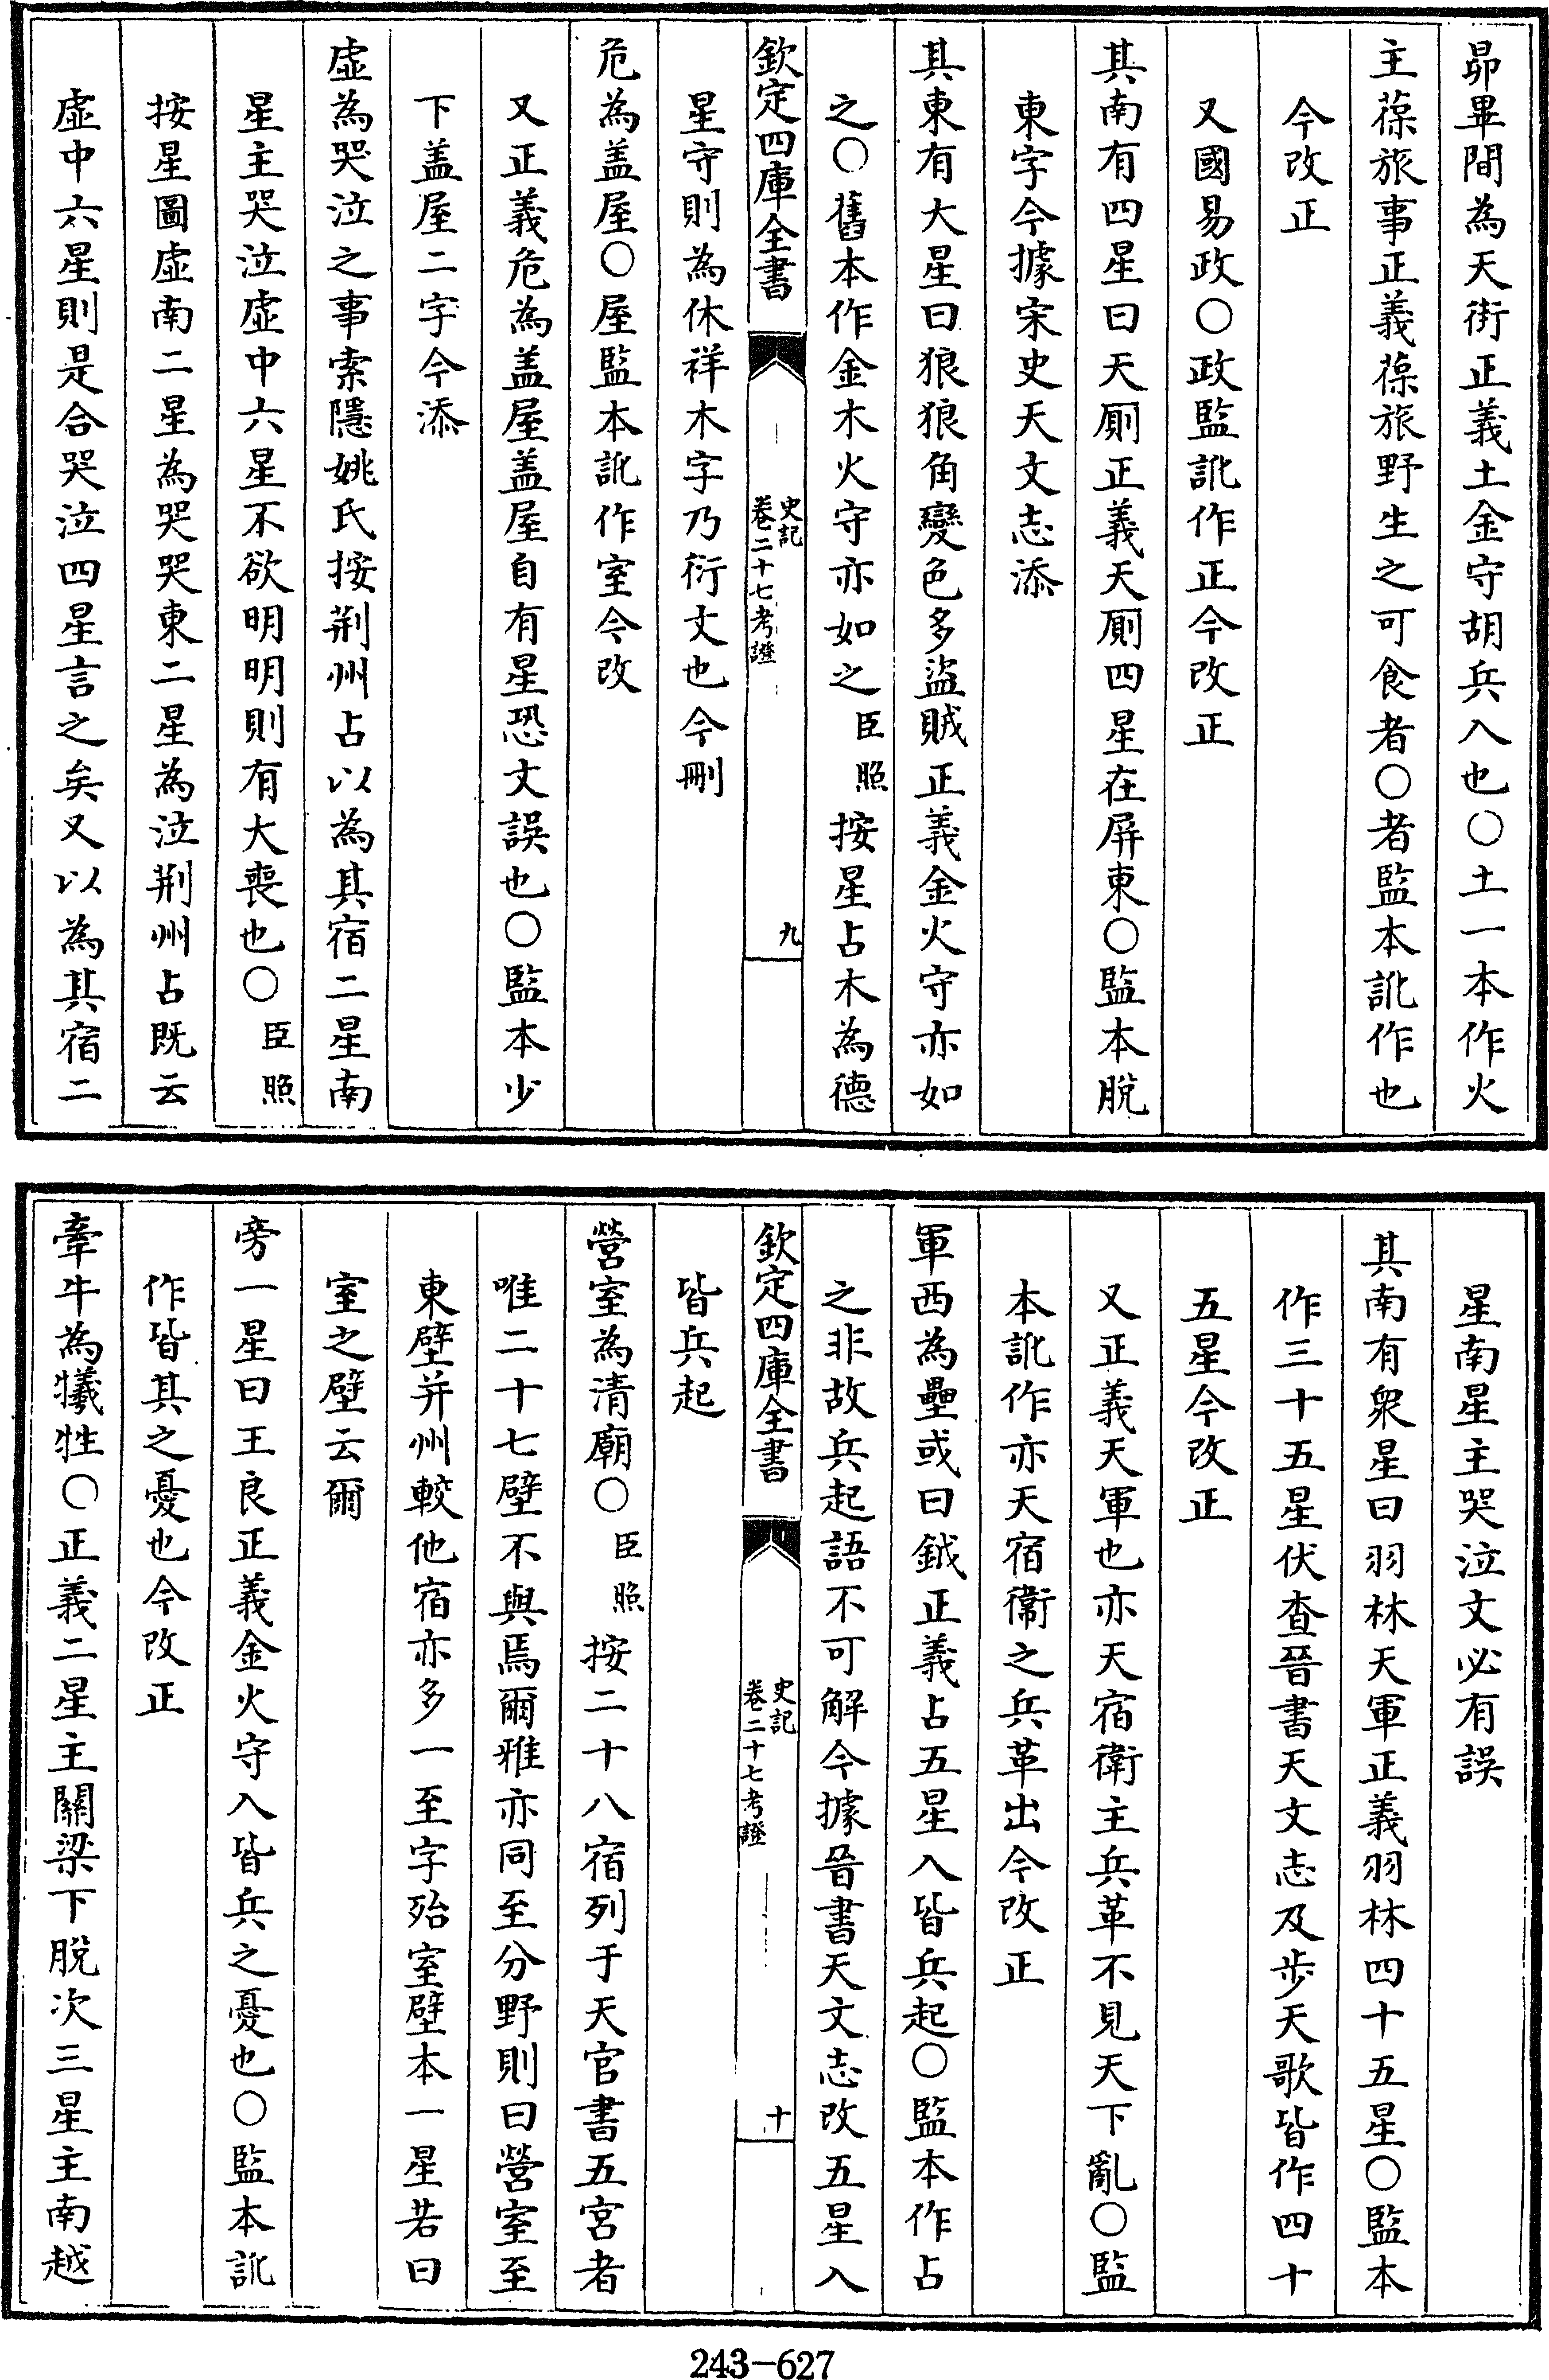 昴畢間為天街正義土金守胡兵入也〇土一本作火
主葆旅事正義葆旅野生之可食者〇者監本訛作也
今改正
又國易政〇政監訛作正今改正
其南有四星曰天厠正義天厠四星在屏東〇監本脫
東字今據宋史天文志添
其東有大星曰狼狼角變色多盜賊正義金火守亦如
之〇舊本作金木火守亦如之臣照按星占木為德
欽定四庫全書
史記
卷二十七考證
九
星守則為休祥木字乃衍文也今刪
危為盖屋〇屋監本訛作室今改
又正義危為盖屋盖屋自有星恐文誤也〇監本少
下盖屋二字今添
虛為哭泣之事索隱姚氏按荆州占以為其宿二星南
星主哭泣虛中六星不欲明明則有大喪也〇臣照
按星圖虛南二星為哭哭東二星為泣荆州占既云
虛中六星則是合哭泣四星言之矣又以為其宿二
星南星主哭泣文必有誤
其南有衆星曰羽林天軍正義羽林四十五星〇監本
作三十五星伏查晉書天文志及步天歌皆作四十
五星今改正
又正義天軍也亦天宿衛主兵革不見天下亂〇監
本訛作亦天宿衞之兵革出今改正
軍西為壘或曰鉞正義占五星入皆兵起〇監本作占
之非故兵起語不可解今據晉書天文志改五星入
欽定四庫全書
史記
卷二十七考證
十
皆兵起
營室為清廟〇臣照按二十八宿列于天官書五宮者
唯二十七壁不與焉爾雅亦同至分野則曰營室至
東壁并州較他宿亦多一至字殆室壁本一星若曰
室之壁云爾
旁一星曰王良正義金火守入皆兵之憂也〇監本訛
作皆其之憂也今改正
牽牛為犧牲〇正義二星主關梁下脫次三星主南越
243-627